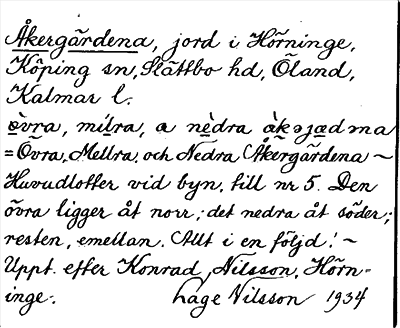 Åkergärdena, jord i Hörninge,
Köping sn, Slättbo hd, Öland,
Kalmar l.
övra, milra, a nèdra àkɘjæd ma
= Övra, Mellra, och Nedra Åkergärdena ~
Huvudlotter vid byn, till nr 5. Den
övra ligger åt norr; det nedra åt söder;
resten, emellan. Allt i en följd! ~
Uppt. efter Konrad Nilsson, Hörn-
inge. Lage Nilsson 1934